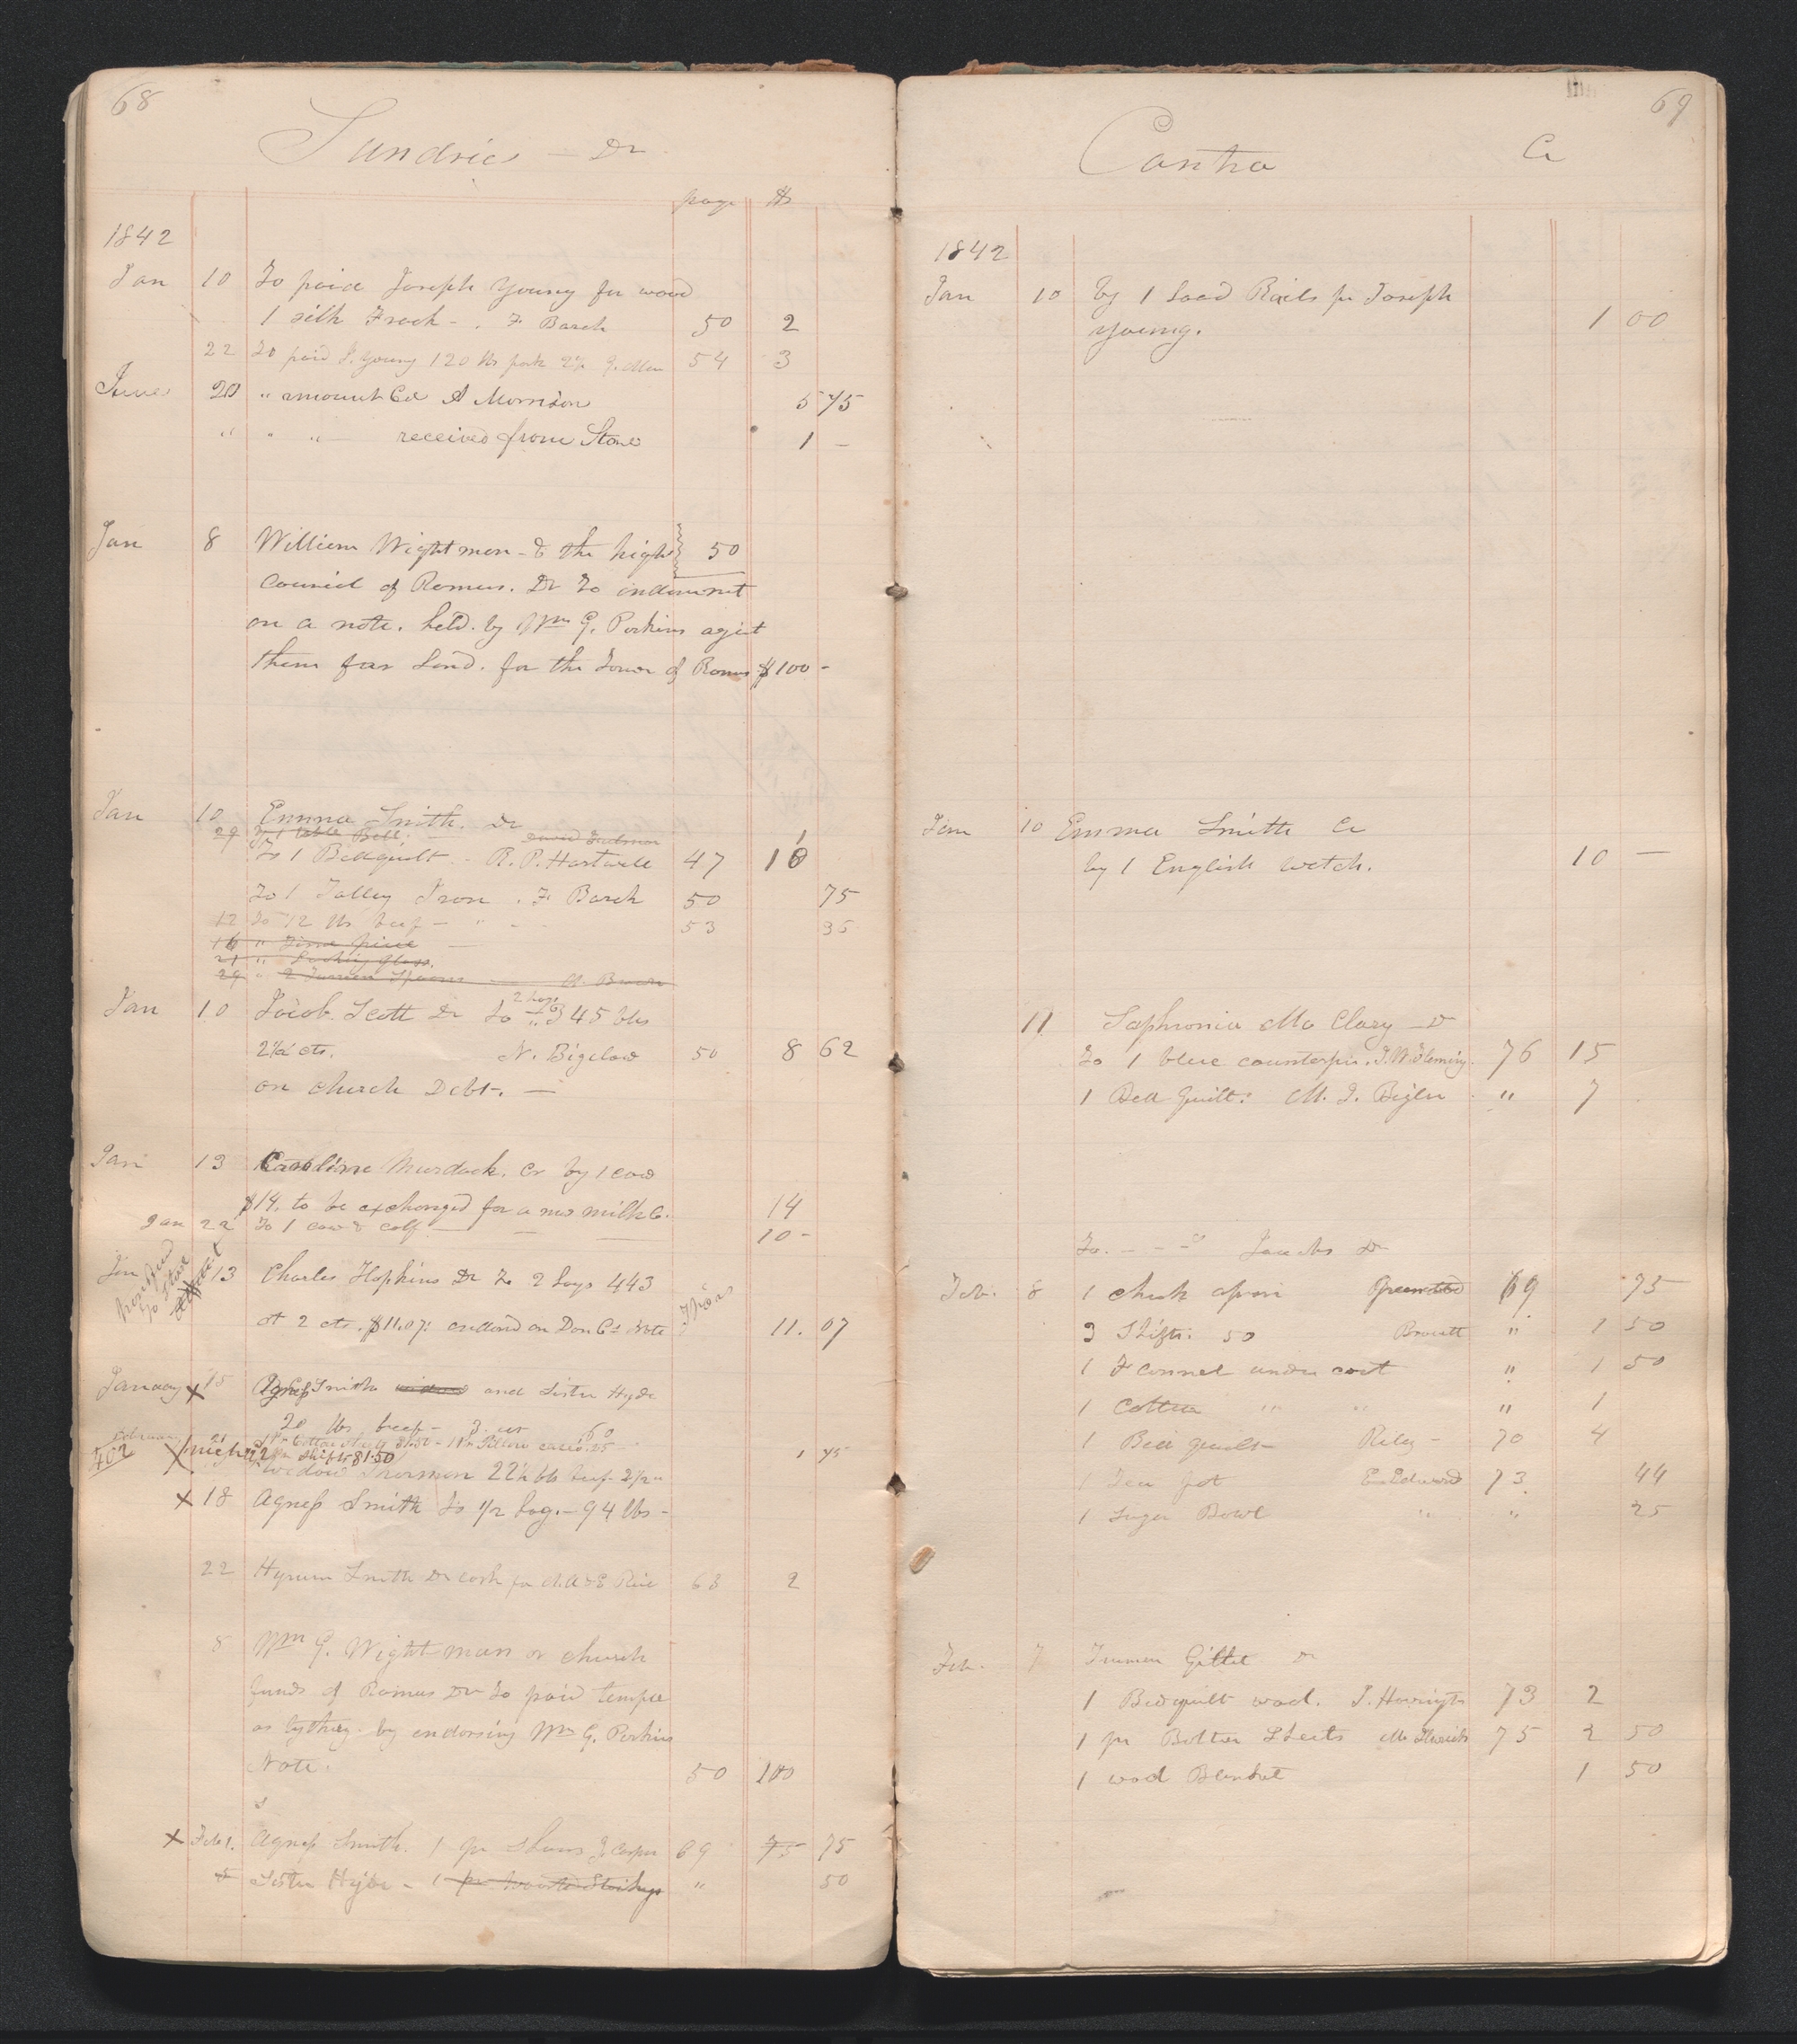 68
Sundries — Dr
page $
1842
Jan 10 To paid Joseph Young for wood
1 silk Frock - . F Barch 50 2
22 To paid J. Young 120 lbs pork 2½ 54 3
June 20 " amount Cd A Morrison 5 75
" " " — received from Stone 1 –
Jan 8 William Wightman - & the high 50
Council of Ramus. Dr To indorsmnt
on a note. held. by Wm G. Perkins agist
them for Land. for the Town of Ramus $100 –
Jan 10 Emma Smith. Dr
29 To 1 table Bell. David 1
To 1 Bedquilt - R. P. Hartwell 47 10
To 1 Talley Iron . F Barch 50 75
12 To 12 lbs beef - " - 53 36
16 " Time piece —
21 " Looking Glass.
29 " 2 Spoons — A. Brown
Jan 10 Jacob. Scott Dr To 2 hogs 345 lbs
2½ cts. N. Bigelow 50 8 62
on church Debt. —
Jan 13 Caroline Murdock. Cr by 1 cow
$14. to be exchanged for a new milk C. 14
Jan 22 To 1 cow & calf — — 10 -
Jan 13 Charles Hopkins Dr To 2 hogs 443
at 2 cts. $11.07: on Don Cs Note 11. 07
January x 15 Agness Smith widow and Sister Hyde
20 lbs beef - 3. 60
February 21 1 pr Cotton Sheets $1.50 - 1 pr Pillow cases .25 1 75
402 X
2 Shifts $1.50
Widow Sherman 22½ lbs beef 2½
x 18 Agness Smith To ½ hog. - 94 lbs -
22 Hyrum Smith Dr cash for 63 2
8 Wm G. Wightman or church
funds of Ramus Dr To paid temple
as tything. by endorsing Wm G. Perkins
Note. 50 100
x Feb 1. Agness Smith. 1 pr Shoes J. Casper 69 75 75
5 Sister Hyde - 1 pr Worsted Stockings " 50
69
Contra Cr
1842
Jan 10 by 1 Load Rails pr Joseph
Young. 1 00
Jan 10 Emma Smith Cr
by 1 English Watch. 10 —
11 Saphronia Mc Clary – Dr
To 1 blue counterpin. J. W. Fleming 76 15
1 Bed quilt: M. J. Bigler " 7
To. - - - Jacobs Dr
Feb. 8 1 check apron 69 75
3 Shifts: 50 " 1 50
1 Flannel under coat " 1 50
1 Cotton " " " 1
1 Bed quilt Riley - 70 4
1 Tea pot E Edward 73 44
1 Sugar Bowl " " 25
Feb. 7 Truman Gillet Dr
1 Bedquilt wool. J. Harrington 73 2
1 pr Cotton Sheets 75 2 50
1 wool Blanket 1 50